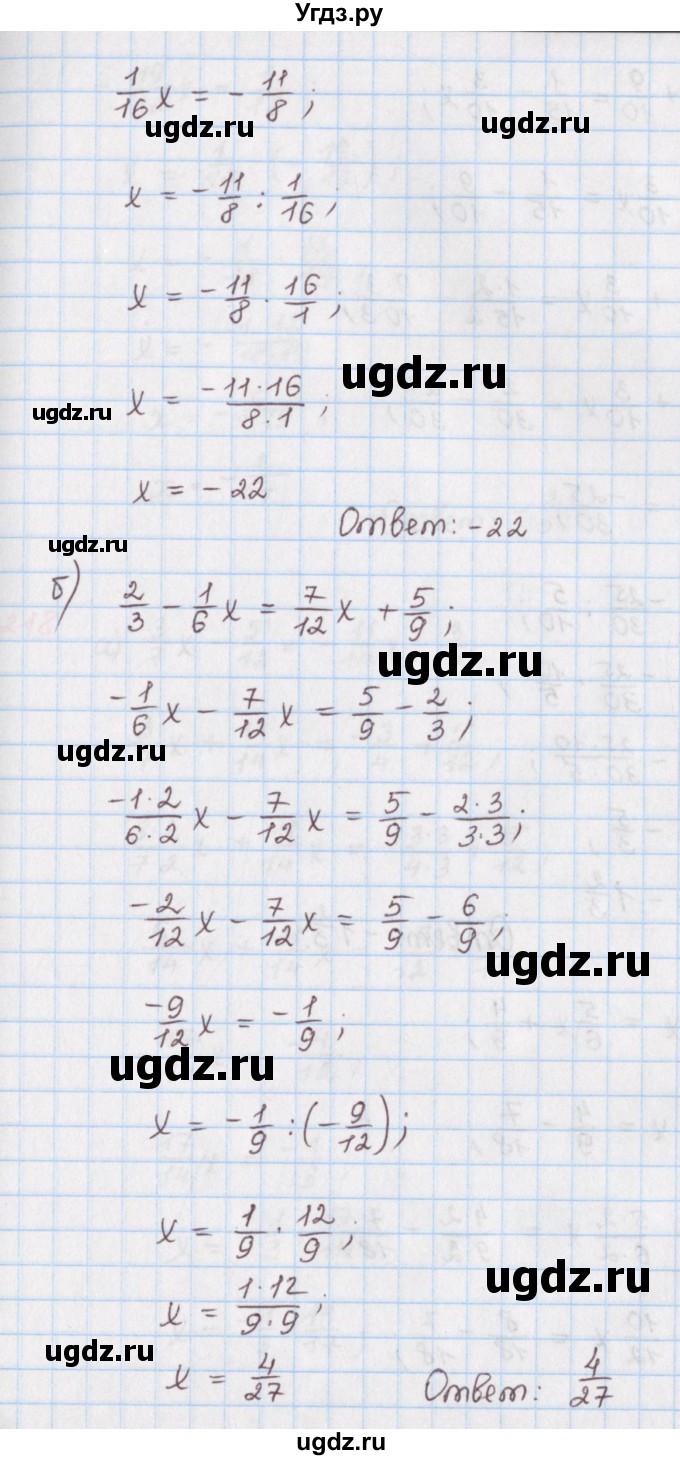 Угдз.ру
1/16 x = - 11/8 ;
ugdz.ru ugdz.ru
x = - 11/8 : 1/16 ;
x = - 11/8 · 16/1 ;
ugdz.ru
x = -11·16/8·1 ;
ugdz.ru
x = - 22
Ответ: -22
ugdz.ru
б) 2/3 - 1/6 x = 7/12 x + 5/9 ;
ugdz.ru
-1/6 x - 7/12 x = 5/9 - 2/3 ;
ugdz.ru
-1·2/6·2 x - 7/12 x = 5/9 - 2·3/3·3 ;
-2/12 x - 7/12 x = 5/9 - 6/9 ;
ugdz.ru
-9/12 x = - 1/9 ;
ugdz.ru
x = - 1/9 : (- 9/12) ;
x = 1/9 · 12/9 ;
ugdz.ru
x = 1·12/9·9 ;
ugdz.ru
x = 4/27 Ответ: 4/27
ugdz.ru